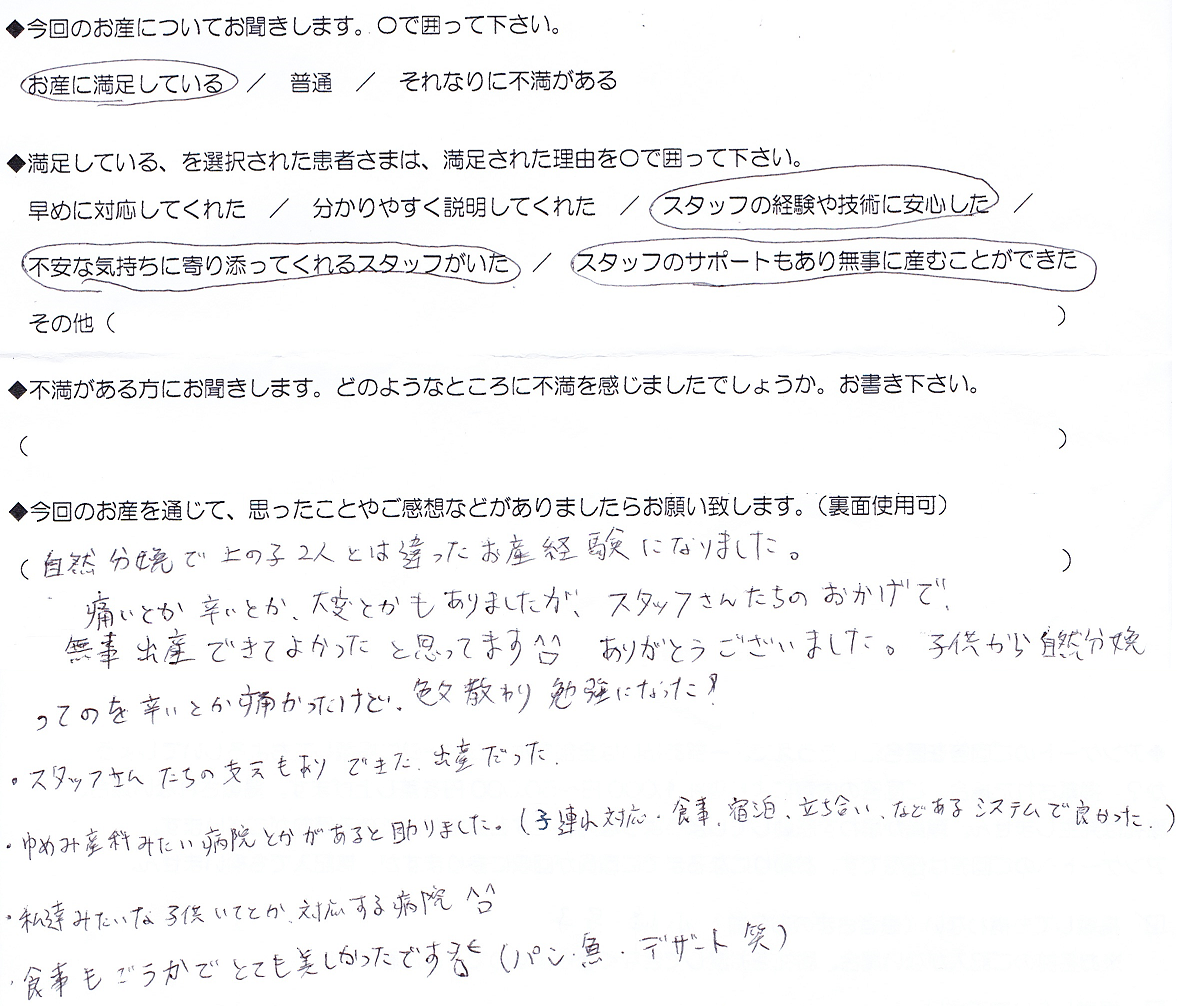 ◆今回のお産についてお聞きします。〇で囲って下さい。
お産に満足している ／ 普通 ／ それなりに不満がある
◆満足している、を選択された患者さまは、満足された理由を〇で囲って下さい。
早めに対応してくれた ／ 分かりやすく説明してくれた ／ スタッフの経験や技術に安心した ／
不安な気持ちに寄り添ってくれるスタッフがいた ／ スタッフのサポートもあり無事に産むことができた
その他（ ）
◆不満がある方にお聞きします。どのようなところに不満を感じましたでしょうか。お書き下さい。
（ ）
◆今回のお産を通じて、思ったことやご感想などがありましたらお願い致します。（裏面使用可）
（自然分娩で上の子2人とは違ったお産経験になりました。 ）
痛いとか辛いとか、大変とかもありましたが、スタッフさんたちのおかげで、
無事出産できてよかったと思ってます^^ ありがとうございました。子供から自然分娩
ってのを辛いとか痛かったけど、 勉強になった!
・スタッフさんたちの支えもありできた、出産だった、
・ゆめみ産科みたい病院とかがあると助りました。(子連れ対応・食事、宿泊、立ち合い、などあるシステムで良かった、)
・私達みたいな子供いてとか、対応する病院^^
・食事もごうかでとても美しかったです (パン・魚・デザート 笑)